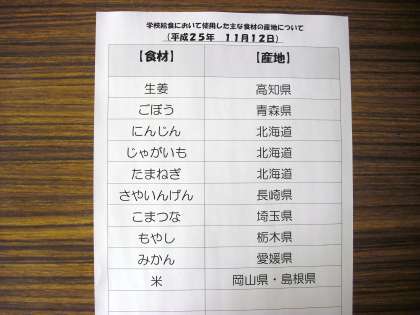 学校給食において使用した主な食材の産地について
(平成25年 11月12日)
【食材】 【産地】
生姜 高知県
ごぼう 青森県
にんじん 北海道
じゃがいも 北海道
たまねぎ 北海道
さやいんげん 長崎県
こまつな 埼玉県
もやし 栃木県
みかん 愛媛県
米 岡山県・島根県